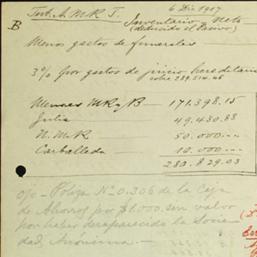 Test. A. M. R. J. 6 Dic 1907
B Inventario Neto
(deducido el Pasivo)
Menos gastos de funerales
3% por gastos de juicio hereditario
sobre 289,514.46
Menores MR y B — 171,398.15
Julia 49,430.88
N. M. R. 50.000.—
Carballeda 10.000.—
280.829.03
ojo - Poliza No 0.306 de la Caja
de Ahorros por $1.000. sin valor
por haber desaparecido la Socie
dad, Anónima. —